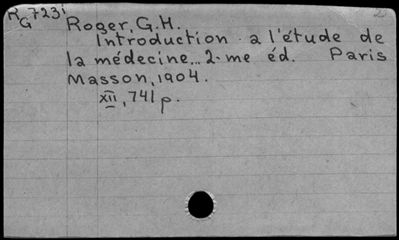 R 723i
G
Roger, G.H.
Introduction a l'étude de
la médecine... 2-me éd. Paris
Masson, 1904.
XII, 741 p.